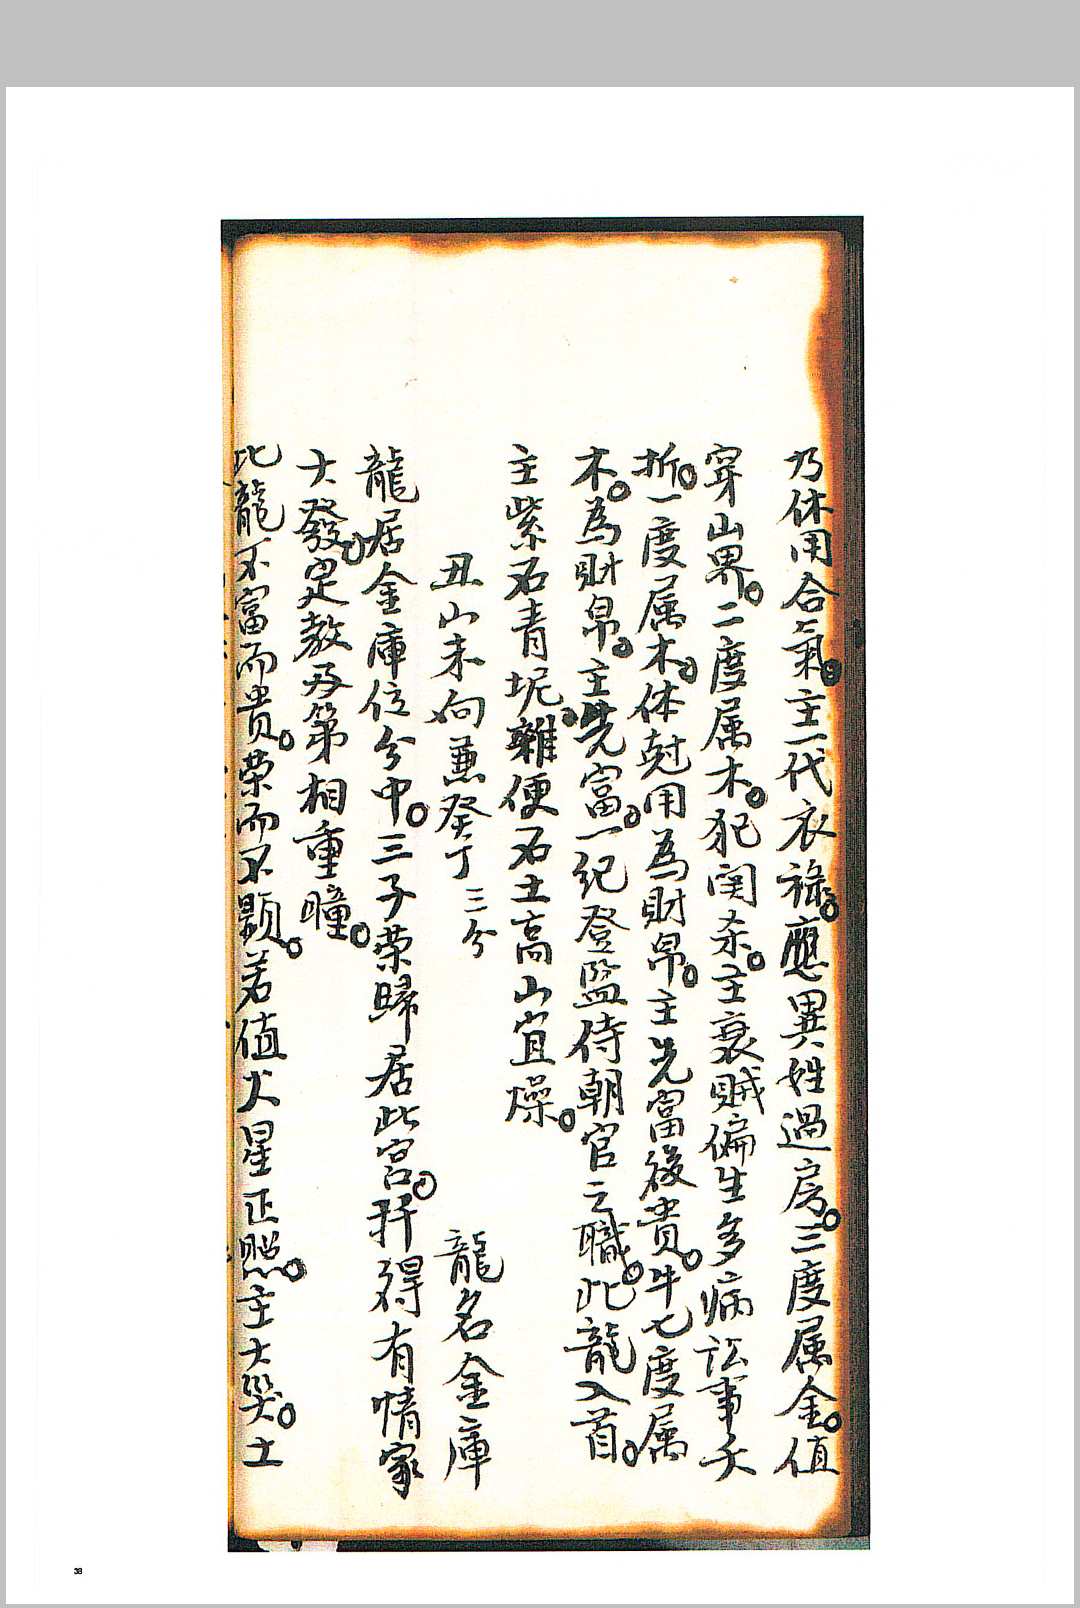 乃休用合氣。主一代衣祿。應異姓過房。三度属金。值
穿山界。二度属木。犯関杀。主衰賊偏生多病訟事夭
折。一度属木。体尅用為財帛。主先富後貴。牛七度属
木。為財帛。主先富。一纪登監侍朝官之職。此龍入首。
主紫石青坭。雜便石土高山宜燥。
丑山未向兼癸丁三分 龍名金庫
龍居金庫位分中。三子荣歸居此宫。扦得有情家
大發。定教及第相重瞳。
此龍不富而贵。荣而不顯。若值火星正照。主大災。土
38